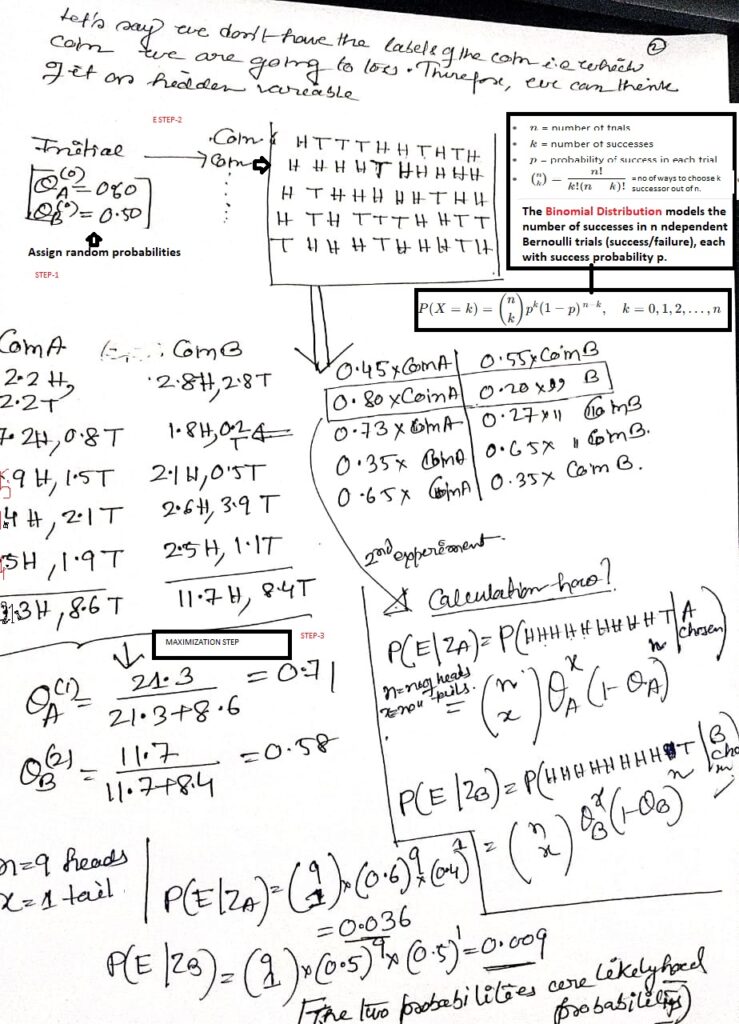 Let's say we don't have the labels of the coin i.e which
coin we are going to toss. Therefore, we can think
of it as hidden variable
2
E STEP-2
Initial
θA(0) = 0.60
θB(0) = 0.50
Assign random probabilities
STEP-1
Coin
Coin
H T T T H H T H T H
H H H H T H H H H H
H T H H H H H T H H
H T H T T T H H T T
T H H H T H H H T H
n = number of trials
k = number of successes
p = probability of success in each trial
(n k) = n! / k!(n k)! = no of ways to choose k
successor out of n.
The Binomial Distribution models the
number of successes in n ndependent
Bernoulli trials (success/failure), each
with success probability p.
P(X = k) = (n k) p^k (1 − p)^n−k, k = 0, 1, 2, . . . , n
Coin A Coin B
2.2 H, 2.8H, 2.8T
2.2T
7.2H, 0.8T 1.8H, 0.2T
.9H, 1.5T 2.1H, 0.5T
.4H, 2.1T 2.6H, 3.9T
.5H, 1.9T 2.5H, 1.1T
.3H, 8.6T 11.7H, 8.4T
0.45 x Coin A 0.55 x Coin B
0.80 x Coin A 0.20 x " B
0.73 x Coin A 0.27 x " Coin B
0.35 x Coin A 0.65 x " Coin B.
0.65 x Coin A 0.35 x Coin B.
MAXIMIZATION STEP
STEP-3
θA(1) = 21.3 / 21.3+8.6 = 0.71
θB(2) = 11.7 / 11.7+8.4 = 0.58
2nd experiment.
Calculation how?
P(E|ZA) = P(HHHHHHHHHT | A chosen)
n = no of heads
x = no " tails.
= (n x) θA^x (1-θA)^n
P(E|ZB) = P(HHHHHHHHHT | B
= (n x) θB^x (1-θB)^n
n=9 heads
x=1 tail.
P(E|ZA) = (9 1) x (0.6)^9 x (0.4)^1
= 0.036
P(E|ZB) = (9 1) x (0.5)^9 x (0.5)^1 = 0.009
(The two probabilities are likelyhood
probabilities)